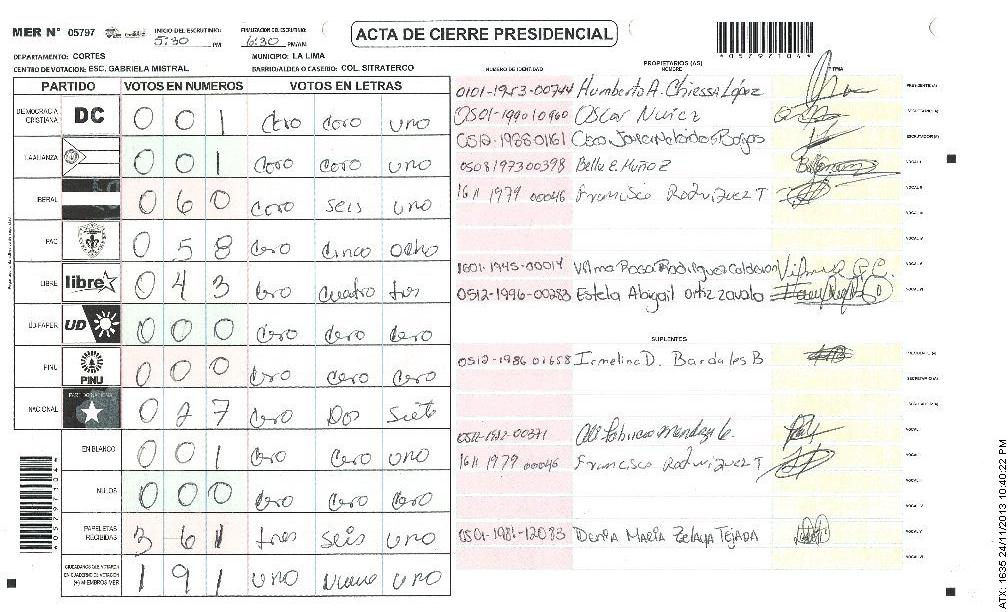 MER N° 05797 INICIO DEL ESCRUTINIO: 5:30 PM FINALIZACION DEL ESCRUTINIO: 6:30 PM/AM
ACTA DE CIERRE PRESIDENCIAL
*05797104*
DEPARTAMENTO: CORTES MUNICIPIO: LA LIMA
CENTRO DE VOTACION: ESC. GABRIELA MISTRAL BARRIO/ALDEA O CASERIO: COL. SITRATERCO
PARTIDO VOTOS EN NUMEROS VOTOS EN LETRAS
DEMOCRACIA CRISTIANA DC 0 0 1 Cero Cero uno
LA ALIANZA 0 0 1 Cero Cero uno
IBERAL 0 6 0 Cero Seis uno
PAC 0 5 8 Cero Cinco Ocho
LIBRE libre 0 4 3 Cero Cuatro tres
UD-FAPER UD 0 0 0 Cero Cero Cero
PINU PINU 0 0 0 Cero Cero Cero
NACIONAL 0 2 7 Cero Dos Siete
EN BLANCO 0 0 1 Cero Cero uno
NULOS 0 0 0 Cero Cero Cero
PAPELETAS RECIBIDAS 3 6 1 tres Seis uno
CIUDADANOS QUE VOTARON EN CUADERNO DE VOTACION (+) MIEMBROS MER 1 9 1 uno Nueve uno
PROPIETARIOS (AS)
NUMERO DE IDENTIDAD NOMBRE FIRMA
0101-1953-00744 Humberto A. Chiessa López PRESIDENTE (A)
0501-1990 10960 Oscar Nuñez SECRETARIO (A)
ESCRUTADOR (A)
0508197300398 Belle E. Muñoz VOCAL I
1611 1979 00046 Francisco Rodriguez T VOCAL II
VOCAL III
VOCAL IV
1601-1945-00014 Vilma Rosa Rodriguez Calderon VOCAL V
0512-1996-00283 Estela Abigail Ortiz Zavala VOCAL VI
SUPLENTES
0512-1986 01658 Irmelina D. Bardales B PRESIDENTE (A)
SECRETARIO (A)
ESCRUTADOR (A)
VOCAL I
1611 1979 00046 Francisco Rodriguez T VOCAL II
VOCAL III
VOCAL IV
0501-1981-12083 Dunia María Zelaya Tejada VOCAL V
VOCAL VI
ATX: 1635 24/11/2013 10:40:22 PM